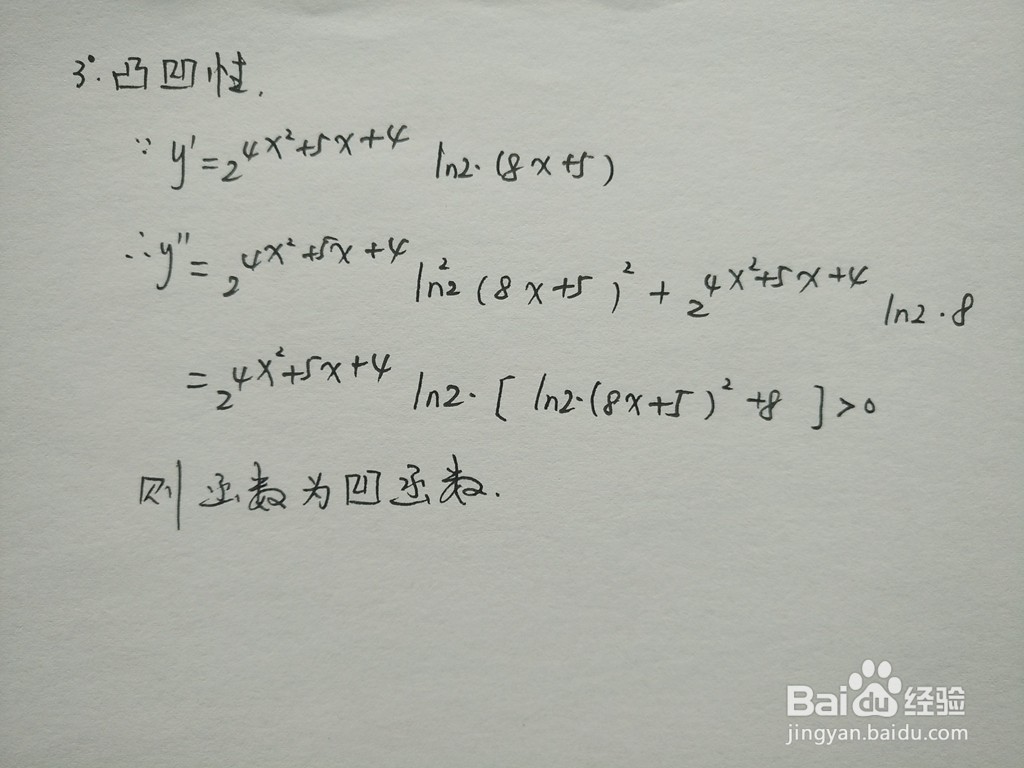 3°.凸凹性.
∵ y'=2^{4x²+5x+4} ln2·(8x+5)
∴y''=2^{4x²+5x+4} ln²2(8x+5)²+2^{4x²+5x+4} ln2·8
=2^{4x²+5x+4} ln2·[ln2·(8x+5)²+8]>0
则函数为凹函数.
Baidu经验
jingyan.baidu.com